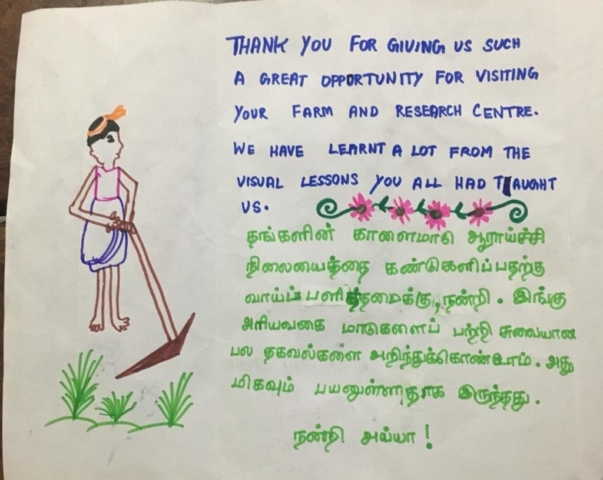 THANK YOU FOR GIVING US SUCH
A GREAT OPPORTUNITY FOR VISITING
YOUR FARM AND RESEARCH CENTRE.
WE HAVE LEARNT A LOT FROM THE
VISUAL LESSONS YOU ALL HAD TAUGHT
US.
தங்களின் காளைமாடு ஆராய்ச்சி
நிலையைத்தை கண்டுகளிப்பதற்கு
வாய்ப்பளித்தமைக்கு, நன்றி. இங்கு
அரியவகை மாடுகளைப் பற்றி சுவையான
பல தகவல்களை அறிந்துக்கொண்டோம். அது
மிகவும் பயனுள்ளதாக இருந்தது.
நன்றி அய்யா!